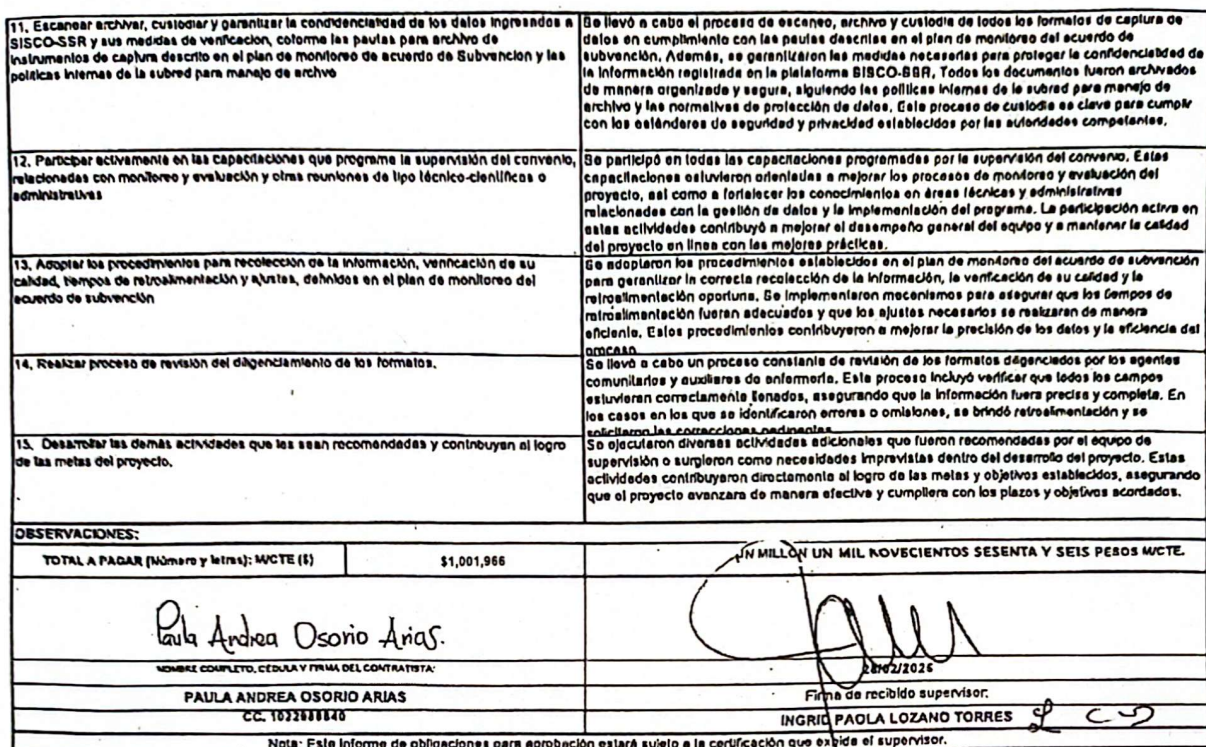 11. Escanear archivar, custodiar y garantizar la condidencialidad de los datos ingresados a
SISCO-SSR y sus medidas de verificación, coforme las pautas para archivo de
instrumentos de captura descrito en el plan de monitoreo de acuerdo de Subvención y las
políticas internas de la subred para manejo de archivo
Se llevó a cabo el proceso de escaneo, archivo y custodia de todos los formatos de captura de
datos en cumplimiento con las pautas descritas en el plan de monitoreo del acuerdo de
subvención. Además, se garantizaron las medidas necesarias para proteger la confidencialidad de
la información registrada en la plataforma SISCO-SSR. Todos los documentos fueron archivados
de manera organizada y segura, siguiendo las políticas internas de la subred para manejo de
archivo y las normativas de protección de datos. Este proceso de custodia es clave para cumplir
con los estándares de seguridad y privacidad establecidos por las autoridades competentes.
12. Participar activamente en las capacitaciones que programe la supervisión del convenio,
relacionadas con monitoreo y evaluación y otras reuniones de tipo técnico-científicas o
administrativas
Se participó en todas las capacitaciones programadas por la supervisión del convenio. Estas
capacitaciones estuvieron orientadas a mejorar los procesos de monitoreo y evaluación del
proyecto, así como a fortalecer los conocimientos en áreas técnicas y administrativas
relacionadas con la gestión de datos y la implementación del programa. La participación activa en
estas actividades contribuyó a mejorar el desempeño general del equipo y a mantener la calidad
del proyecto en línea con las mejores prácticas.
13. Adoptar los procedimientos para recolección de la información, verificación de su
calidad, tiempos de retroalimentación y ajustes, definidos en el plan de monitoreo del
acuerdo de subvención
Se adoptaron los procedimientos establecidos en el plan de monitoreo del acuerdo de subvención
para garantizar la correcta recolección de la información, la verificación de su calidad y la
retroalimentación oportuna. Se implementaron mecanismos para asegurar que los tiempos de
retroalimentación fueran adecuados y que los ajustes necesarios se realizaran de manera
eficiente. Estos procedimientos contribuyeron a mejorar la precisión de los datos y la eficiencia del
proceso.
14. Realizar proceso de revisión del diligenciamiento de los formatos.
Se llevó a cabo un proceso constante de revisión de los formatos diligenciados por los agentes
comunitarios y auxiliares de enfermería. Este proceso incluyó verificar que todos los campos
estuvieran correctamente llenados, asegurando que la información fuera precisa y completa. En
los casos en los que se identificaron errores o omisiones, se brindó retroalimentación y se
solicitaron las correcciones pertinentes.
15. Desarrollar las demás actividades que las sean recomendadas y contribuyan al logro
de las metas del proyecto.
Se ejecutaron diversas actividades adicionales que fueron recomendadas por el equipo de
supervisión o surgieron como necesidades imprevistas dentro del desarrollo del proyecto. Estas
actividades contribuyeron directamente al logro de las metas y objetivos establecidos, asegurando
que el proyecto avanzara de manera efectiva y cumpliera con los plazos y objetivos acordados.
OBSERVACIONES:
TOTAL A PAGAR (Número y letras): M/CTE ($)
$1,001,966
UN MILLON UN MIL NOVECIENTOS SESENTA Y SEIS PESOS M/CTE.
Paula Andrea Osorio Arias.
NOMBRE COMPLETO, CÉDULA Y FIRMA DEL CONTRATISTA:
28/02/2025
PAULA ANDREA OSORIO ARIAS
Firma de recibido supervisor:
CC.
INGRID PAOLA LOZANO TORRES
Nota: Este informe de obligaciones para aprobación estará sujeto a la certificación que expida el supervisor.